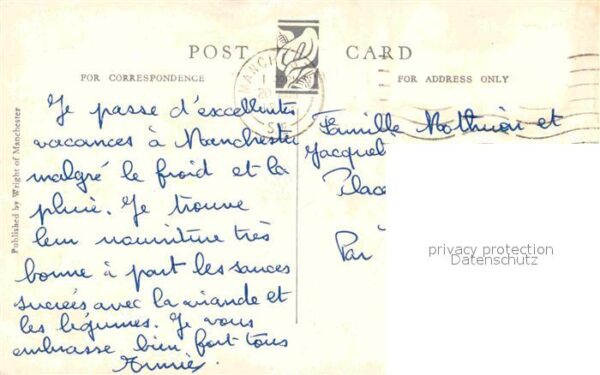 POST CARD
FOR CORRESPONDENCE
FOR ADDRESS ONLY
Published by Wright of Manchester
MANCH
Je passe d'excellentes
vacances à Manchester
malgré le froid et la
pluie. Je trouve
leur nourriture très
bonne à part les sauces
sucrées avec la viande et
les légumes. Je vous
embrasse bien fort tous
Annie
Famille et
Jacquel
Place
Par
privacy protection
Datenschutz